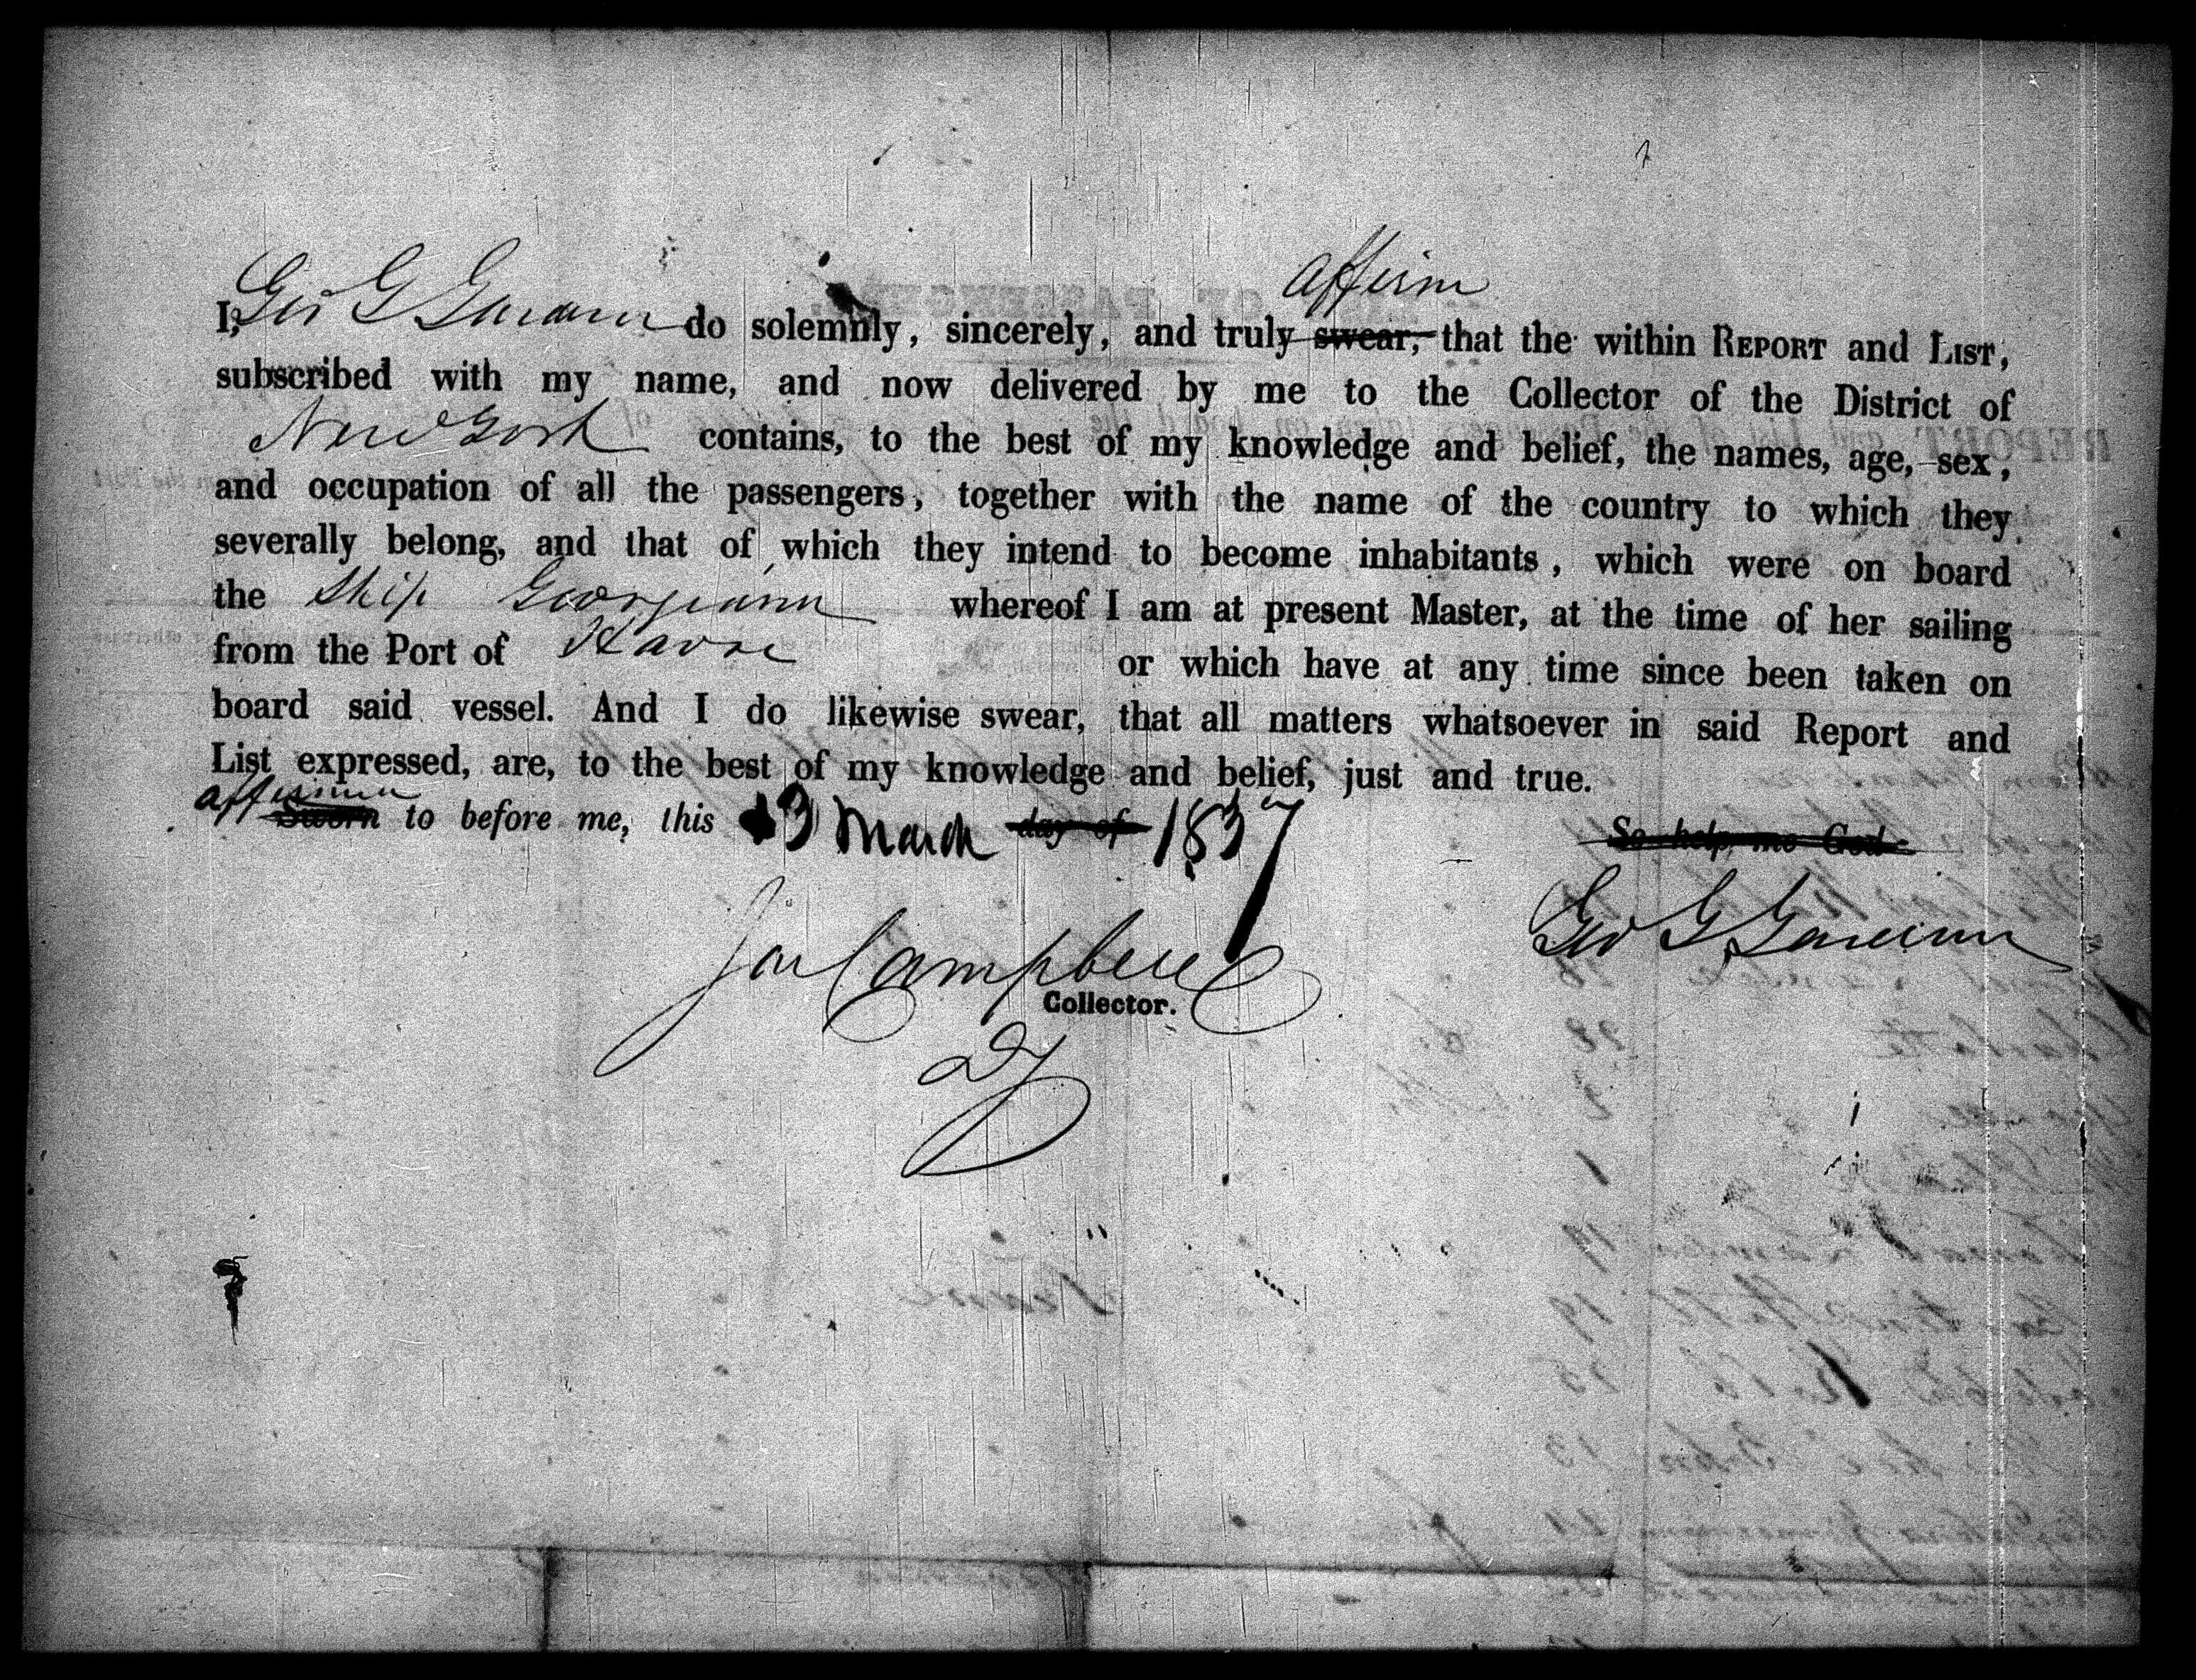 affirm
I, Geo G do solemnly, sincerely, and truly swear, that the within REPORT and LIST,
subscribed with my name, and now delivered by me to the Collector of the District of
New York contains, to the best of my knowledge and belief, the names, age, sex,
and occupation of all the passengers, together with the name of the country to which they
severally belong, and that of which they intend to become inhabitants, which were on board
the Ship Georgiana whereof I am at present Master, at the time of her sailing
from the Port of Havre or which have at any time since been taken on
board said vessel. And I do likewise swear, that all matters whatsoever in said Report and
List expressed, are, to the best of my knowledge and belief, just and true.
Sworn to before me, this 3 March day of 1837
So help me God.
Geo G
Campbell
Collector.
Dy